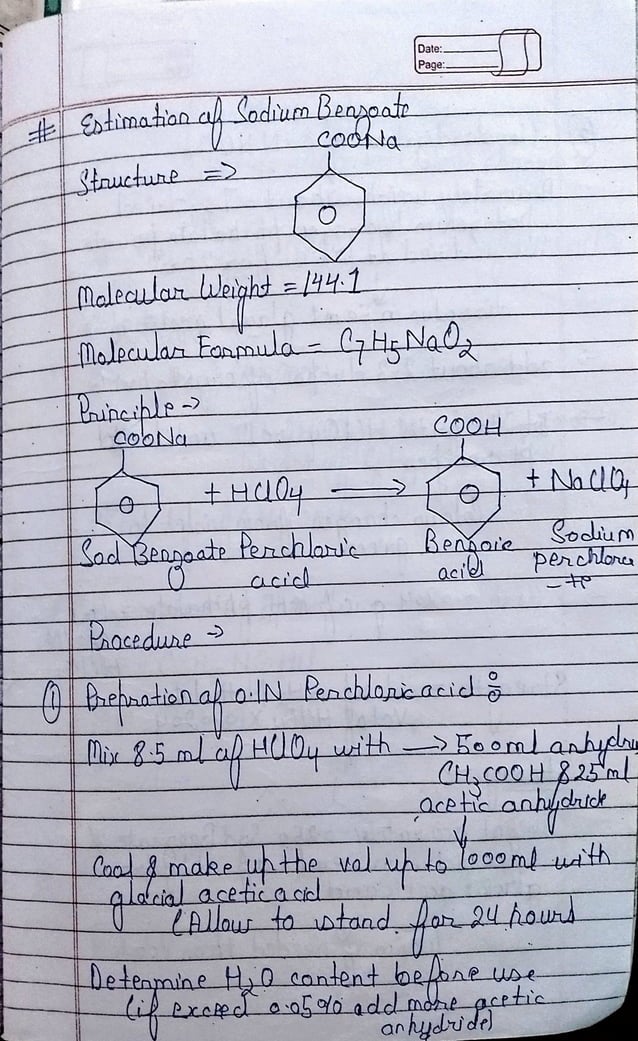 Date:
Page:
# Estimation of Sodium Benzoate
COONa
Structure =>
Molecular Weight = 144.1
Molecular Formula - C7H5NaO2
Principle ->
COONa
COOH
+ HClO4 ⟶ + NaClO4
Sod Benzoate Perchloric acid Benzoic acid Sodium perchlorate
Procedure ->
① Prepration of 0.1N Perchloric acid :
Mix 8.5 ml of HClO4 with ⟶ 500ml anhydru
CH3COOH & 25 ml
acetic anhydride
↓
Cool & make up the vol up to 1000ml with
glacial acetic acid
(Allow to stand for 24 hours
Determine H2O content before use
(if exceed 0.05% add more acetic
anhydride)